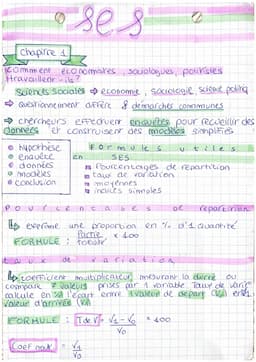 SES
chapitre 1
Comment économistes, sociologues, politistes
travaillent-ils?
Sciences sociales ⇒ économie, sociologie, science politiq
⇒ questionnement affère & démarches communes
⇒ chercheurs effectuent enquêtes pour recueillir des
données et construisent des modèles simplifiés
Formules utiles
en SES
hypothèse
enquête
données
modèles
conclusion
pourcentages de répartition
taux de variation
moyennes
indices simples
Pourcentages de répartition
↳ exprime une proportion en % d'1 quantité
FORMULE : Partie / totale × 100
taux de variation
↳ coefficient multiplicateur, mesurant la
compare 2 valeurs prises par 1 variable Taux de var°
calcule en l'écart entre 1 valeur de départ (V0) et 1
valeur d'arrivée (V1)
FORMULE : T de V = V1 - V0 / V0 × 100
Coef mult = V1 / V0